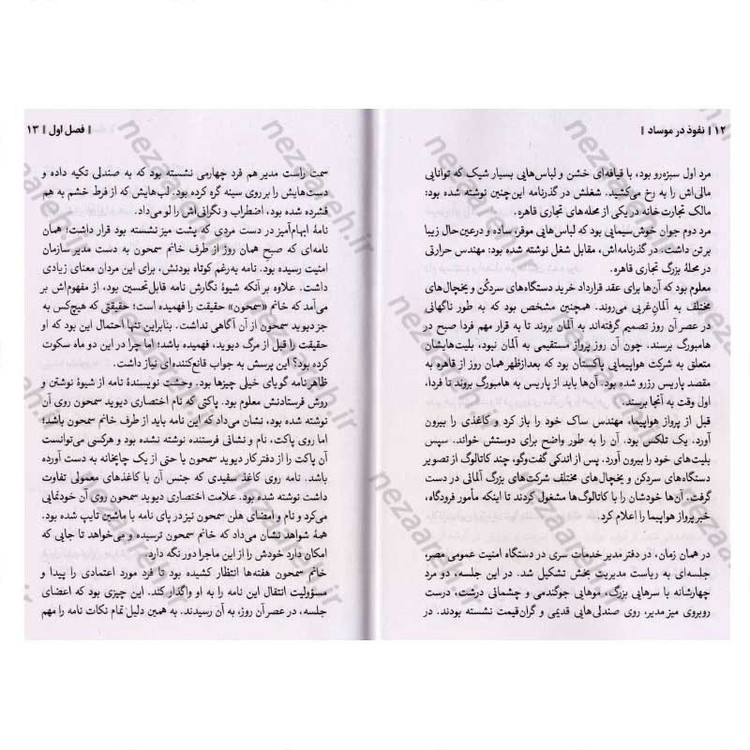 ۱۲ | نفوذ در موساد |
مرد اول سبزه‌رو بود، با قیافه‌ای خشن و لباس‌هایی بسیار شیک که توانایی
مالی‌اش را به رخ می‌کشید. شغلش در گذرنامه این‌چنین نوشته شده بود:
مالک تجارت‌خانه در یکی از محله‌های تجاری قاهره.
مرد دوم جوان خوش سیمایی بود که لباس‌هایی موقر، ساده و درعین‌حال زیبا
بر تن داشت. در گذرنامه‌اش، مقابل شغل نوشته شده بود: مهندس حرارتی
در محلهٔ بزرگ تجاری قاهره.
معلوم بود که آن‌ها برای عقد قرارداد خرید دستگاه‌های سردکُن و یخچال‌های
مختلف به آلمان غربی می‌روند. همچنین مشخص بود که به طور ناگهانی
در عصر آن روز تصمیم گرفته‌اند به آلمان بروند تا به قرار مهم فردا صبح در
هامبورگ برسند. چون آن روز پرواز مستقیمی به آلمان نبود، بلیت‌هایشان
متعلق به شرکت هواپیمایی پاکستان بود که بعدازظهر همان روز از قاهره به
مقصد پاریس رزرو شده بود. آن‌ها باید از پاریس به هامبورگ بروند تا فردا،
اول وقت به آنجا برسند.
قبل از پرواز هواپیما، مهندس ساک خود را باز کرد و کاغذی را بیرون
آورد. یک تلکس بود. آن را به طور واضح برای دوستش خواند. سپس
بلیت‌های خود را بیرون آورد. پس از اندکی گفت‌وگو، چند کاتالوگ از تصویر
دستگاه‌های سردکن و یخچال‌های مختلف شرکت‌های بزرگ آلمانی در دست
گرفت. آن‌ها خودشان را با کاتالوگ‌ها مشغول کردند تا اینکه مأمور فرودگاه،
خبر پرواز هواپیما را اعلام کرد.
در همان زمان، در دفتر مدیر خدمات سری در دستگاه امنیت عمومی مصر،
جلسه‌ای به ریاست مدیریت بخش تشکیل شد. در این جلسه، دو مرد
چهارشانه با سرهایی بزرگ، موهایی جوگندمی و چشمانی درشت، درست
روبروی میز مدیر، روی صندلی‌هایی قدیمی و گران‌قیمت نشسته بودند. در
| فصل اول | ۱۳
سمت راست مدیر هم فرد چهارمی نشسته بود که به صندلی تکیه داده و
دست‌هایش را بر روی سینه گره کرده بود. لب‌هایش که از فرط خشم به هم
فشرده شده بود، اضطراب و نگرانی‌اش را لو می‌داد.
نامهٔ ابهام‌آمیز در دست مردی که پشت میز نشسته بود قرار داشت؛ همان
نامه‌ای که صبح همان روز از طرف خانم سمحون به دست مدیر سازمان
امنیت رسیده بود. نامه به‌رغم کوتاه بودنش، برای این مردان معنای زیادی
داشت. علاوه بر آنکه شیوهٔ نگارش نامه قابل‌تحسین بود، از مفهوم‌اش بر
می‌آمد که خانم «سمحون» حقیقت را فهمیده است؛ حقیقتی که هیچ‌کس به
جز دیوید سمحون از آن آگاهی نداشت. بنابراین تنها احتمال این بود که او
حقیقت را قبل از مرگ دیوید، فهمیده باشد؛ اما چرا در این دو ماه سکوت
کرده بود؟ این پرسش به جواب قانع‌کننده‌ای نیاز داشت.
ظاهر نامه گویای خیلی چیزها بود. وحشت نویسندهٔ نامه از شیوهٔ نوشتن و
روش فرستادنش معلوم بود. پاکتی که نام اختصاری دیوید سمحون روی آن
نوشته شده بود، نشان می‌داد که این نامه باید از طرف خانم سمحون باشد؛
اما روی پاکت، نام و نشانی فرستنده نوشته نشده بود و هرکسی می‌توانست
آن پاکت را از دفتر کار دیوید سمحون یا حتی از یک چاپخانه به دست آورده
باشد. نامه روی کاغذ سفیدی که جنس آن با کاغذهای معمولی تفاوت
داشت نوشته شده بود. علامت اختصاری دیوید سمحون روی آن خودنمایی
می‌کرد و نام و امضای هلن سمحون نیز در پای نامه با ماشین تایپ شده بود.
همهٔ شواهد نشان می‌داد که خانم سمحون ترسیده و می‌خواهد تا جایی که
امکان دارد خودش را از این ماجرا دور نگه دارد.
خانم سمحون هفته‌ها انتظار کشیده بود تا فرد مورد اعتمادی را پیدا و
مسؤولیت انتقال این نامه را به او واگذار کند. این چیزی بود که اعضای
جلسه، در عصر آن روز، به آن رسیدند. به همین دلیل تمام نکات نامه را مهم
nezaareh.ir